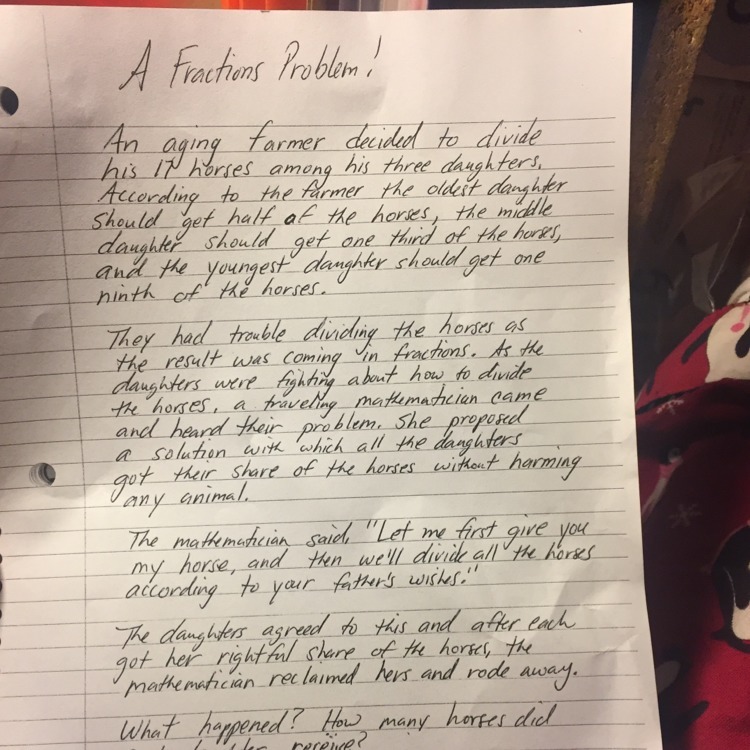 A Fractions Problem!
An aging farmer decided to divide
his 17 horses among his three daughters.
According to the farmer the oldest daughter
should get half of the horses, the middle
daughter should get one third of the horses,
and the youngest daughter should get one
ninth of the horses.
They had trouble dividing the horses as
the result was coming in fractions. As the
daughters were fighting about how to divide
the horses, a traveling mathematician came
and heard their problem. She proposed
a solution with which all the daughters
got their share of the horses without harming
any animal.
The mathematician said, "Let me first give you
my horse, and then we'll divide all the horses
according to your father's wishes."
The daughters agreed to this and after each
got her rightful share of the horses, the
mathematician reclaimed hers and rode away.
What happened? How many horses did
receive?